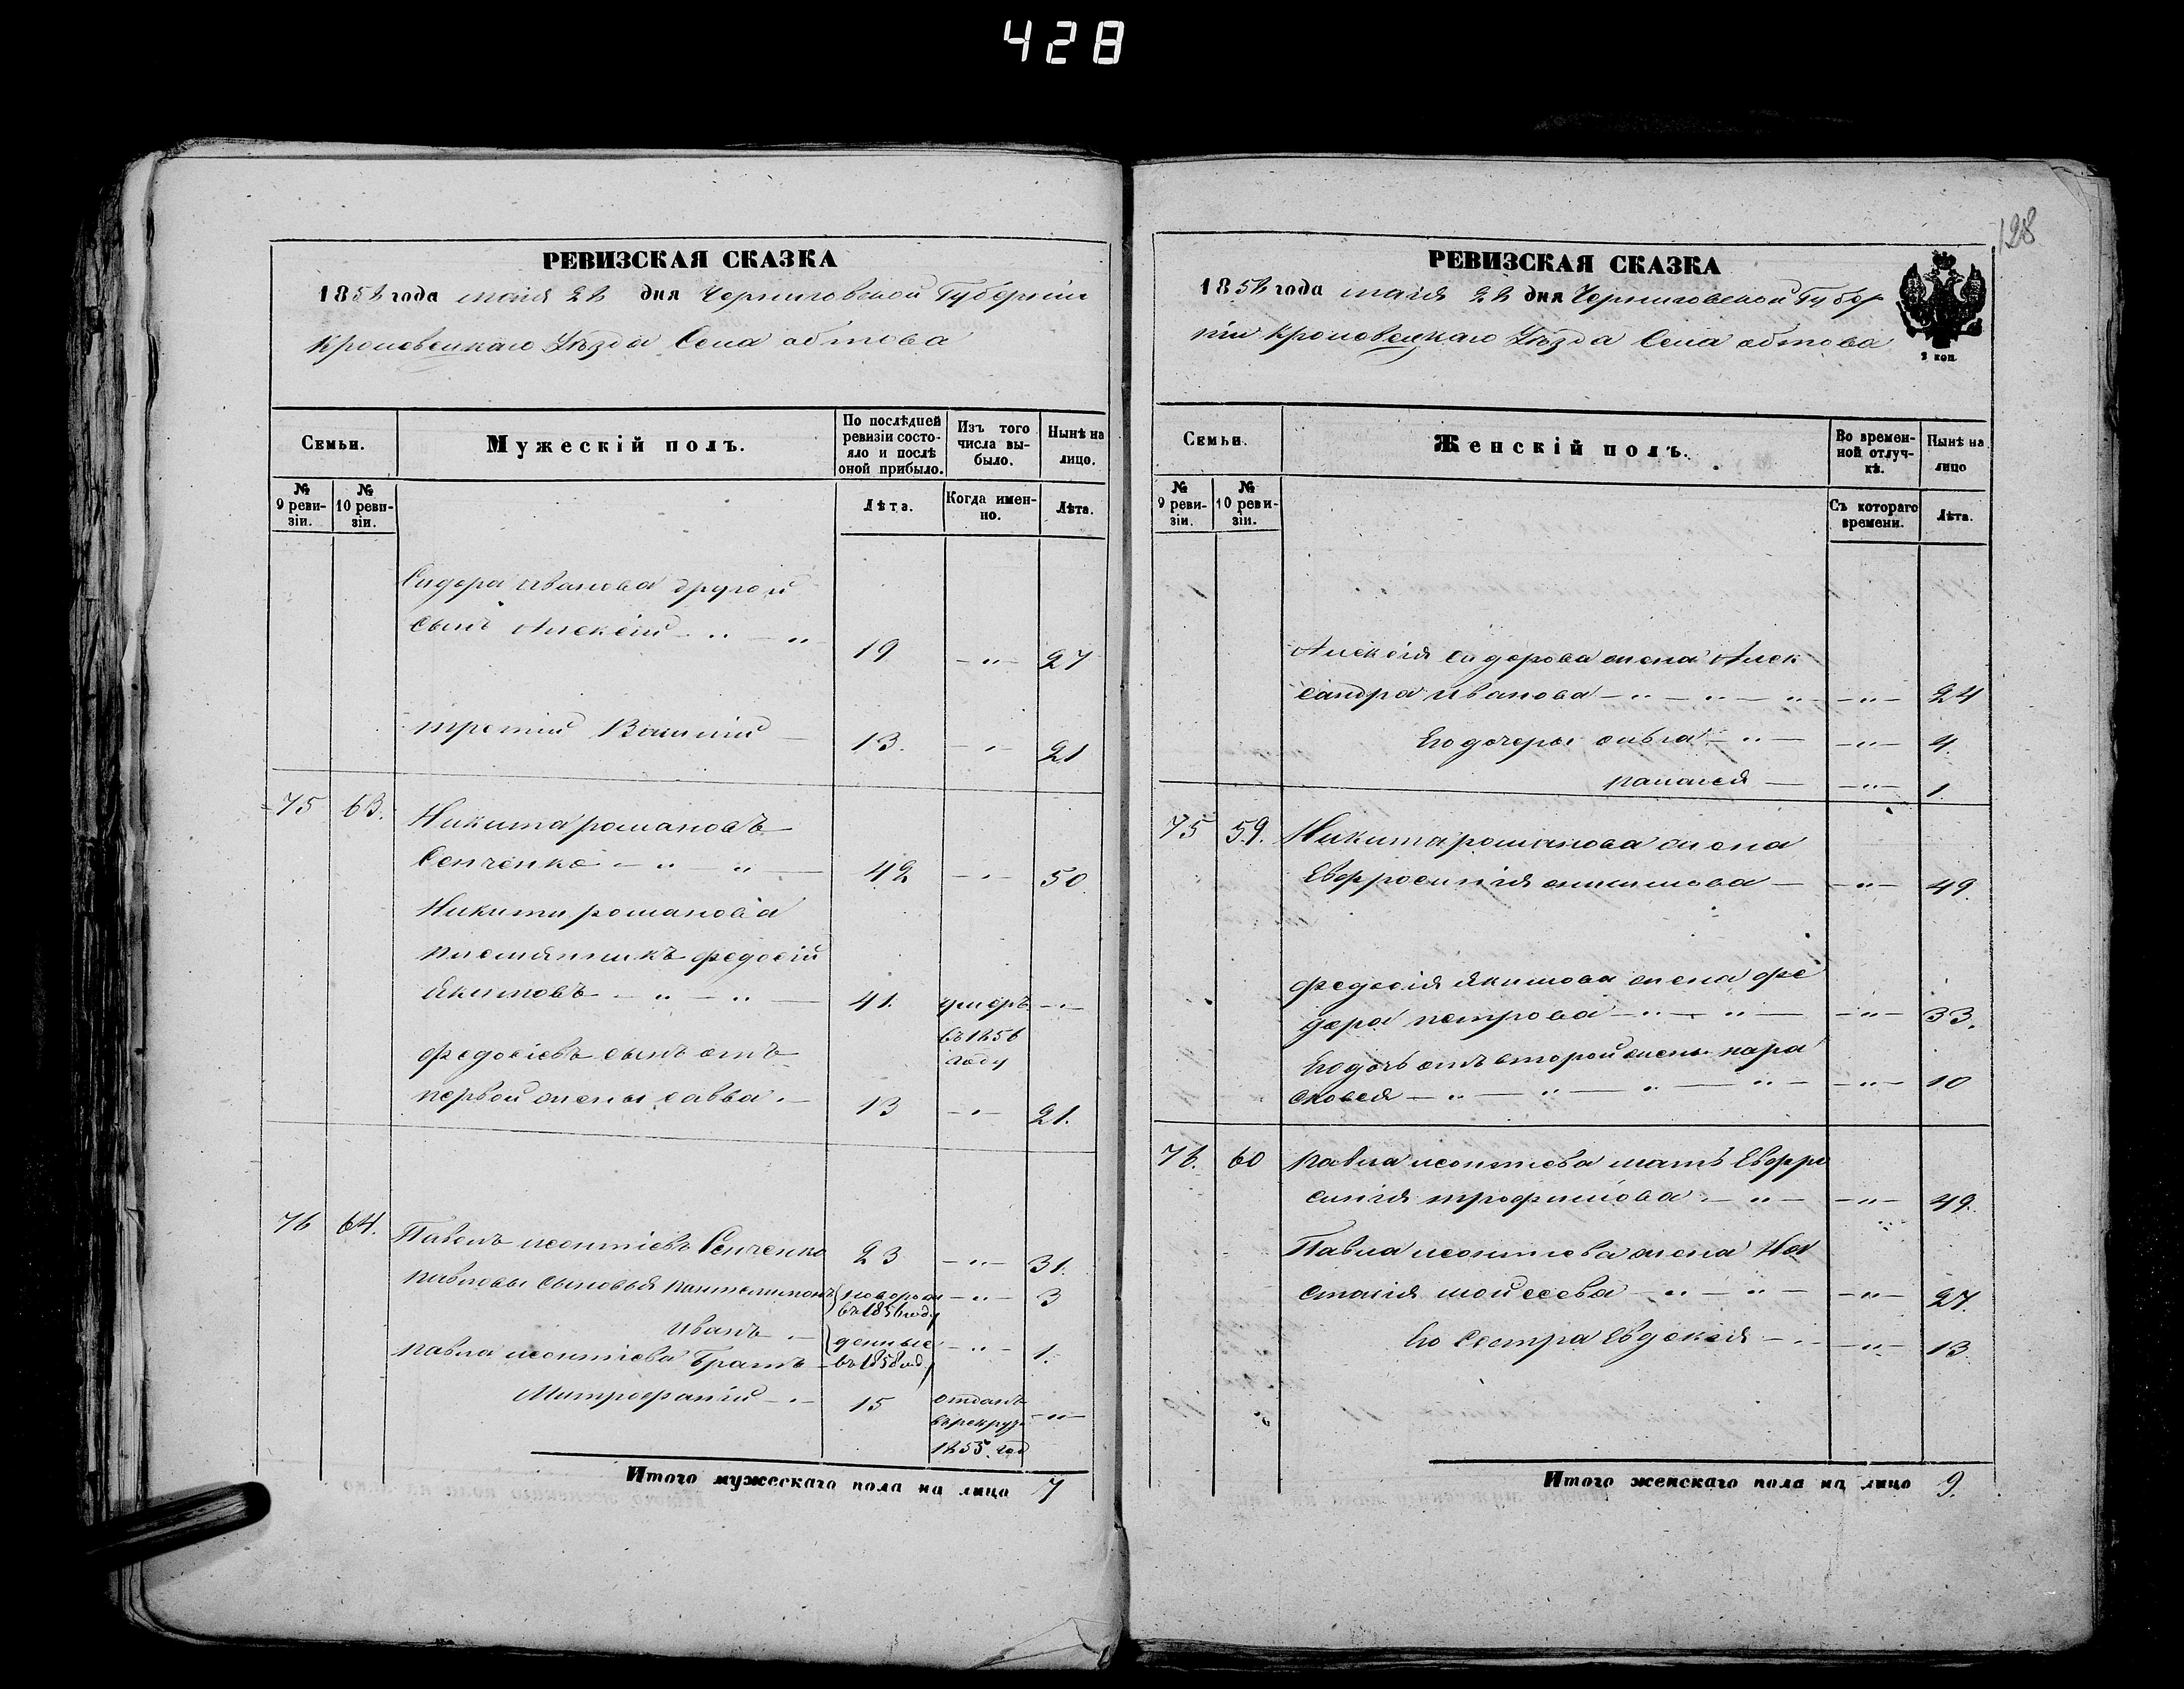 428
РЕВИЗСКАЯ СКАЗКА
1858 года мaія 28 дня Черниговской Губерніи
Кролевецкаго Уѣзда Села обтова
Семьи.
Мужескій полъ.
По послѣдней ревизіи состояло и послѣ оной прибыло.
Изъ того числа выбыло.
Нынѣ на лицо.
№ 9 ревизіи.
№ 10 ревизіи.
Лѣта.
Когда именно.
Лѣта.
Сидора иванова другой
сынъ Алексѣй 19 -"- 27
третій Василій 13. -"- 21
75 63. Никита романовъ
Сенченко 42 -"- 50
Никиты романова
племянникъ федосій
Якимовъ 41. умеръ -"-
въ 1856
году
федосіевъ сынъ отъ
первой жены савва 13 -"- 21.
76 64. Павелъ леонтіевъ Сенченко 23 -"- 31.
павловы сыновья пантелимонъ новорож -"- 3
въ 1856 году
иванъ денные -"- 1.
въ 1858 год
павла леонтіева Братъ
Митрофаній 15 отданъ -"-
въ рекруты
1855. год
Итого мужескаго пола на лицо 7
128
РЕВИЗСКАЯ СКАЗКА
1858 года маія 28 дня Черниговской Губер
ніи Кролевецкаго Уѣзда Села обтова
2 коп.
Семьи.
Женскій полъ.
Во временной отлучкѣ.
Нынѣ на лицо
№ 9 ревизіи.
№ 10 ревизіи.
Съ котораго времени.
Лѣта.
Алексѣя сидорова жена Алек
сандра иванова -"- 24
Его дочеры ольга -"- 4.
палагея -"- 1.
75 59. Никита романова жена
Евфросинія онисимова -"- 49.
федосія якимова жена фе
дора петрова -"- 33.
Его дочь отъ второй жены пара
сковея -"- 10
76. 60 павла леонтіева мать Евфро
синія трофимова -"- 49.
Павла леонтіева жена На
стасія мойсеева -"- 27.
Его Сестра Евдокея -"- 13.
Итого женскаго пола на лицо 9.